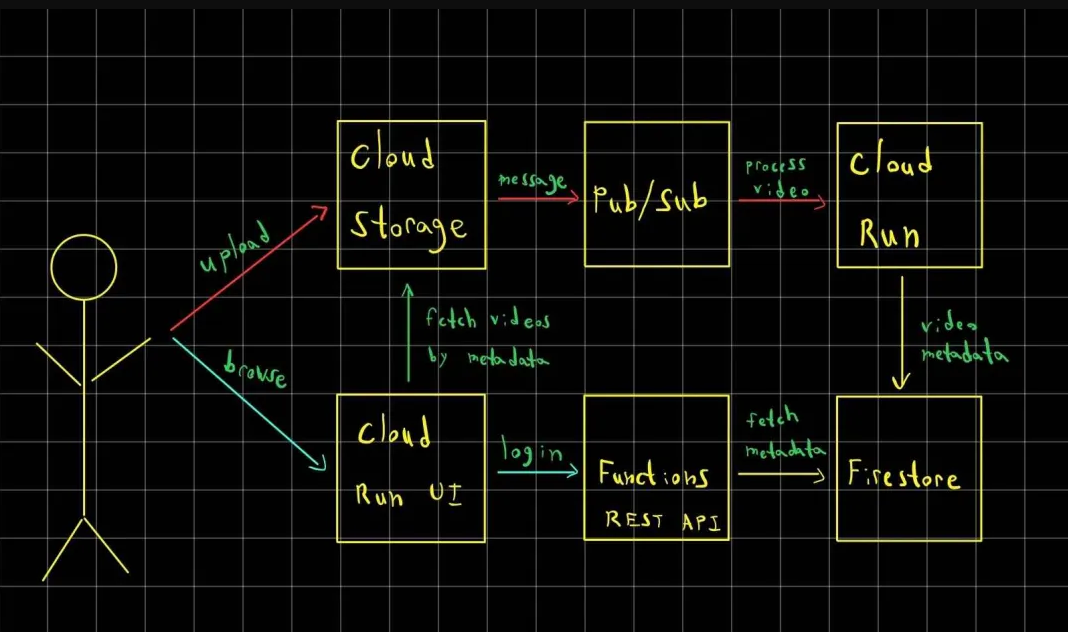 Cloud
Storage
message
Pub/Sub
process
video
Cloud
Run
upload
fetch videos
by metadata
video
metadata
browse
Cloud
Run UI
login
Functions
REST API
fetch
metadata
Firestore